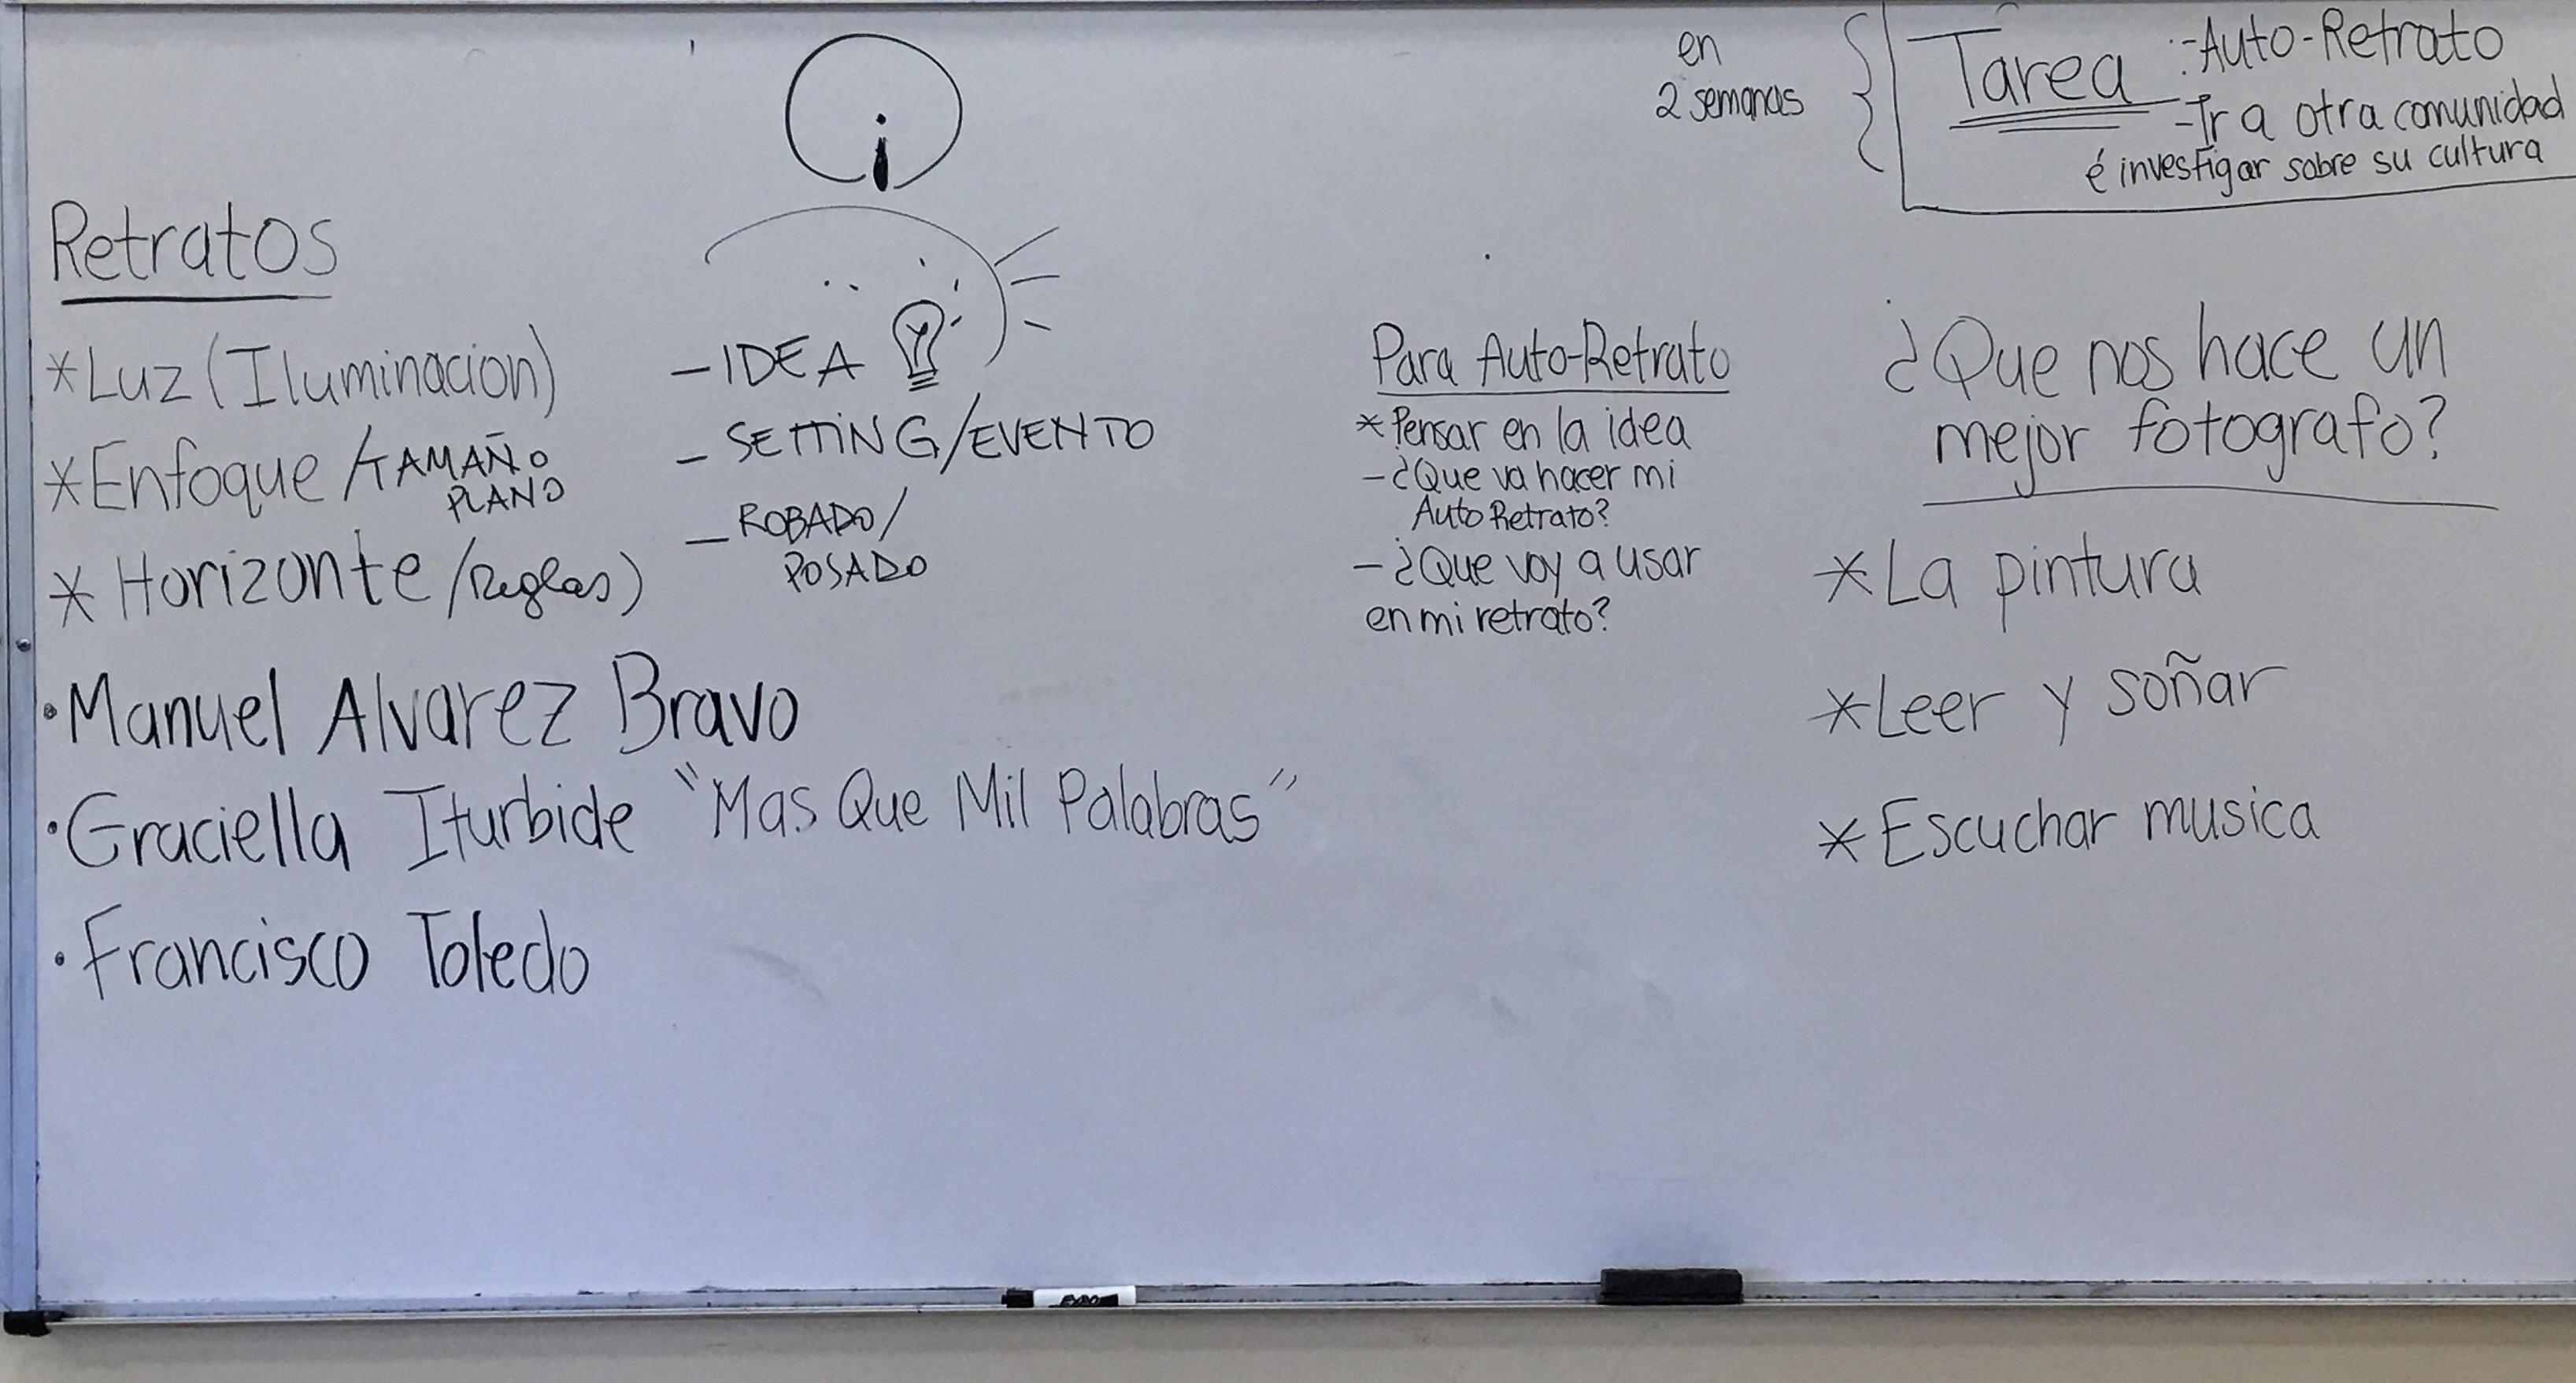 en
2 semanas
Tarea :-Auto-Retrato
-Ir a otra comunidad
é investigar sobre su cultura
Retratos
*Luz (Iluminacion)
*Enfoque /TAMAÑO
PLANO
* Horizonte /Reglas)
- IDEA
- SETTING/EVENTO
- ROBADO/
POSADO
•Manuel Alvarez Bravo
•Graciella Iturbide "Mas Que Mil Palabras"
•Francisco Toledo
Para Auto-Retrato
*Pensar en la idea
-¿Que va hacer mi
Auto Retrato?
-¿Que voy a usar
en mi retrato?
¿Que nos hace un
mejor fotografo?
*La pintura
*Leer y soñar
*Escuchar musica
EXPO